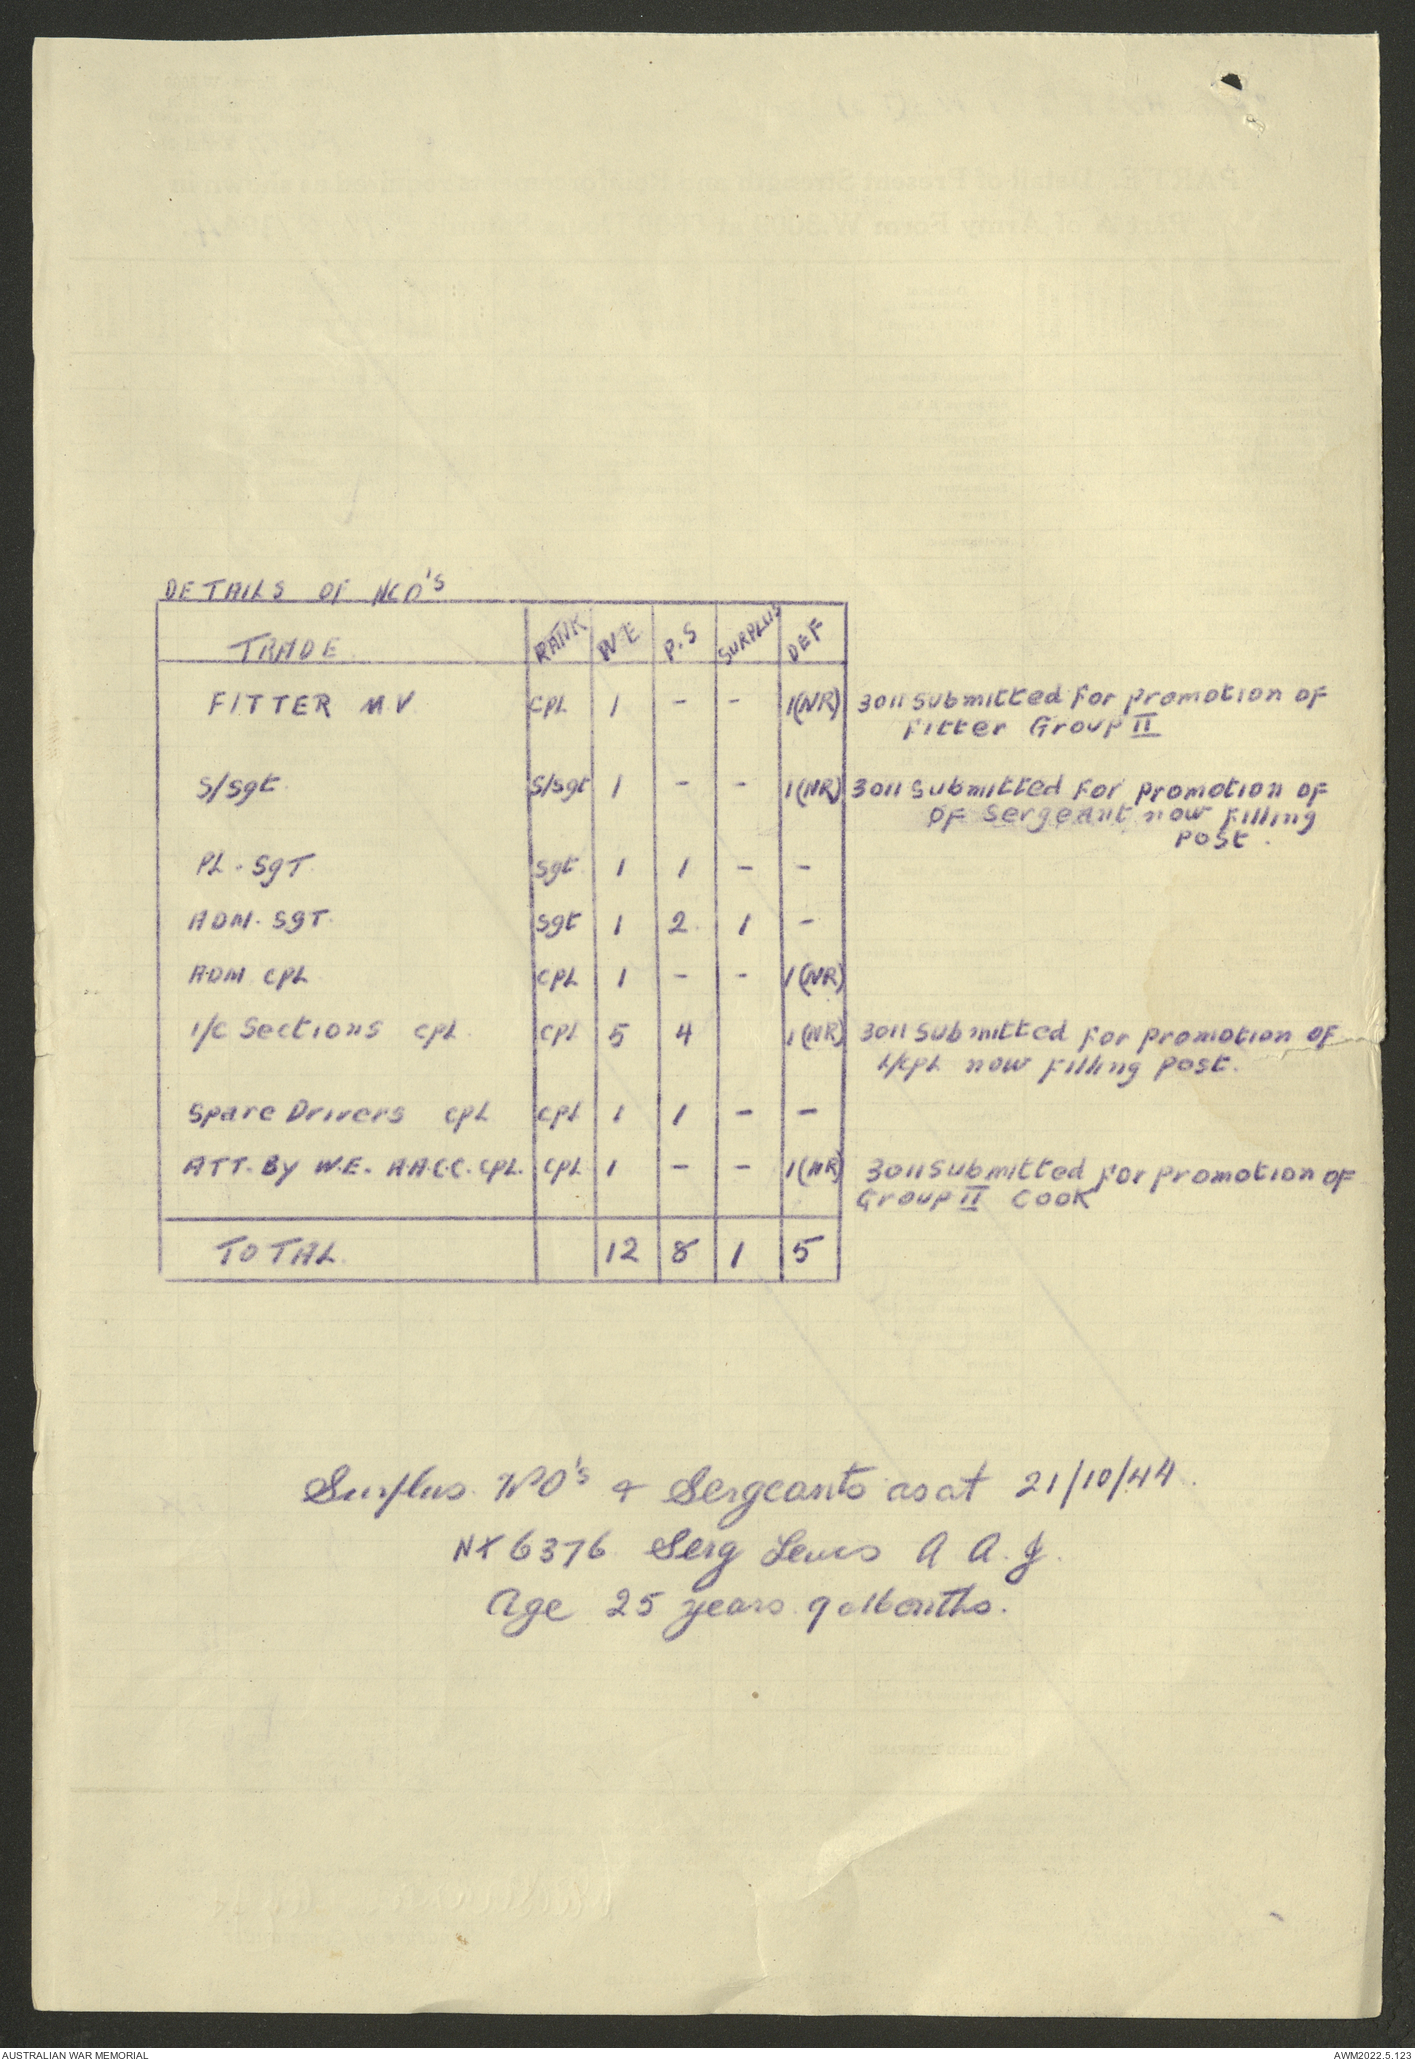 DETAILS OF NCO'S
TRADE RANK W E P.S SURPLUS DEF
FITTER M V CPL 1 - - 1(NR) 3011 Submitted for promotion of
Fitter Group II
S/Sgt S/Sgt 1 - - 1(NR) 3011 Submitted for promotion of
of Sergeant now filling
post.
PL. SgT Sgt 1 1 - -
ADM. SgT. Sgt 1 2 1 -
ADM CPL CPL 1 - - 1(NR)
I/C Sections CPL CPL 5 4 1(NR) 3011 Submitted for promotion of
L/CPL now filling post.
Spare Drivers CPL CPL 1 1 - -
ATT. By W.E. A.A.C.C. CPL. CPL 1 - - 1(NR) 3011 Submitted for promotion of
Group II Cook
TOTAL 12 8 1 5
Surplus WO's & Sergeants as at 21/10/44.
NX6376 Serg Lewis A A. J.
Age 25 years 9 Months.
AUSTRALIAN WAR MEMORIAL AWM2022.5.123